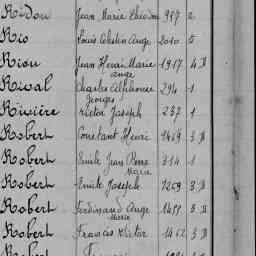 Ridou Jean Marie Théodore 957 2
Rio Louis Célestin Ange 2010 5
Riou Jean Henri Marie 1917 4 B
ange
Rival Charles Alphonse 294 1
Georges
Rivière Victor Joseph 237 1
Robert Constant Henri 1469 3 B
Robert Emile Jean Pierre 314 1
Marie
Robert Emile Joseph 1259 3 B
Robert Ferdinand Ange 1455 3 B
Marie
Robert Francis Victor 1462 3 B
Robert